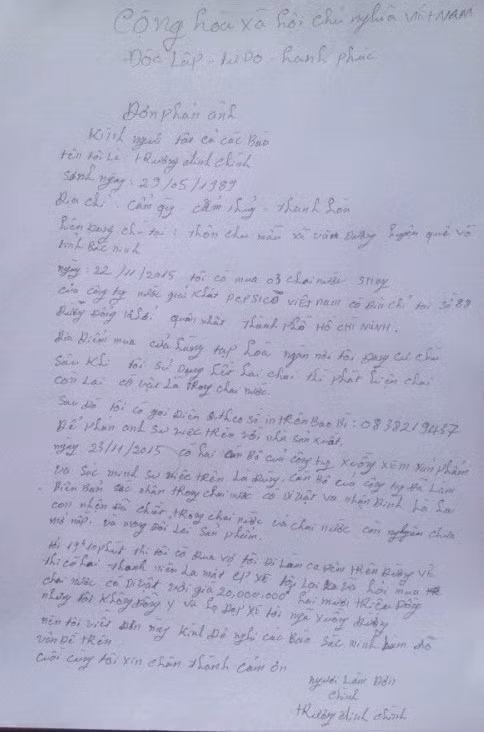 Cộng hòa xã hội chủ nghĩa VIỆT NAM
Độc lập - tự do - hạnh phúc
Đơn phản ánh
Kính người tất cả các Báo
tên tôi là: trương đình chính
Sinh ngày: 29/05/1989
Địa chỉ: cẩm quý - cẩm thủy - thanh hóa
hiện đang ở tại: thôn chu mẫu xã vân dương huyện quế võ
tỉnh bắc ninh
ngày: 22/11/2015 tôi có mua 03 chai nước sting
của công ty nước giải khát PEPSICO VIỆTNAM có địa chỉ tại số 88
đường đồng khởi quận nhất thành phố HỒ CHÍ MINH.
địa điểm mua cửa hàng tạp hóa ngay nơi tôi đang cư chú
Sau khi tôi sử dụng hết hai chai thì phát hiện chai
còn lại có vật lạ trong chai nước.
Sau đó tôi có gọi điện theo số in trên bao bì: 0838219437
Để phản ánh sự việc trên với nhà sản xuất.
ngày 23/11/2015 có hai cán bộ của công ty xuống xem sản phẩm
và sác minh sự việc trên là đúng. cán bộ của công ty đã làm
Biên bản sác nhận trong chai nước có dị vật và nhận định là
con nhện đã chết trong chai nước và chai nước còn nguyên chưa
mở nắp, và mong đổi lại sản phẩm.
19h10 phút thì tôi có đưa vợ tôi đi làm ca đêm trên đường về
thì có hai thanh niên lạ mặt ép xe tôi lại và hỏi mua
chai nước có dị vật với giá 20.000.000 hai mươi triệu đồng
nhưng tôi không đồng ý và họ đạp xe tôi ngã xuống đường
nên tôi viết đơn này kính đề nghị các Báo sác minh làm rõ
vấn đề trên
cuối cùng tôi xin chân thành cảm ơn
người làm đơn
chính
trương đình chính